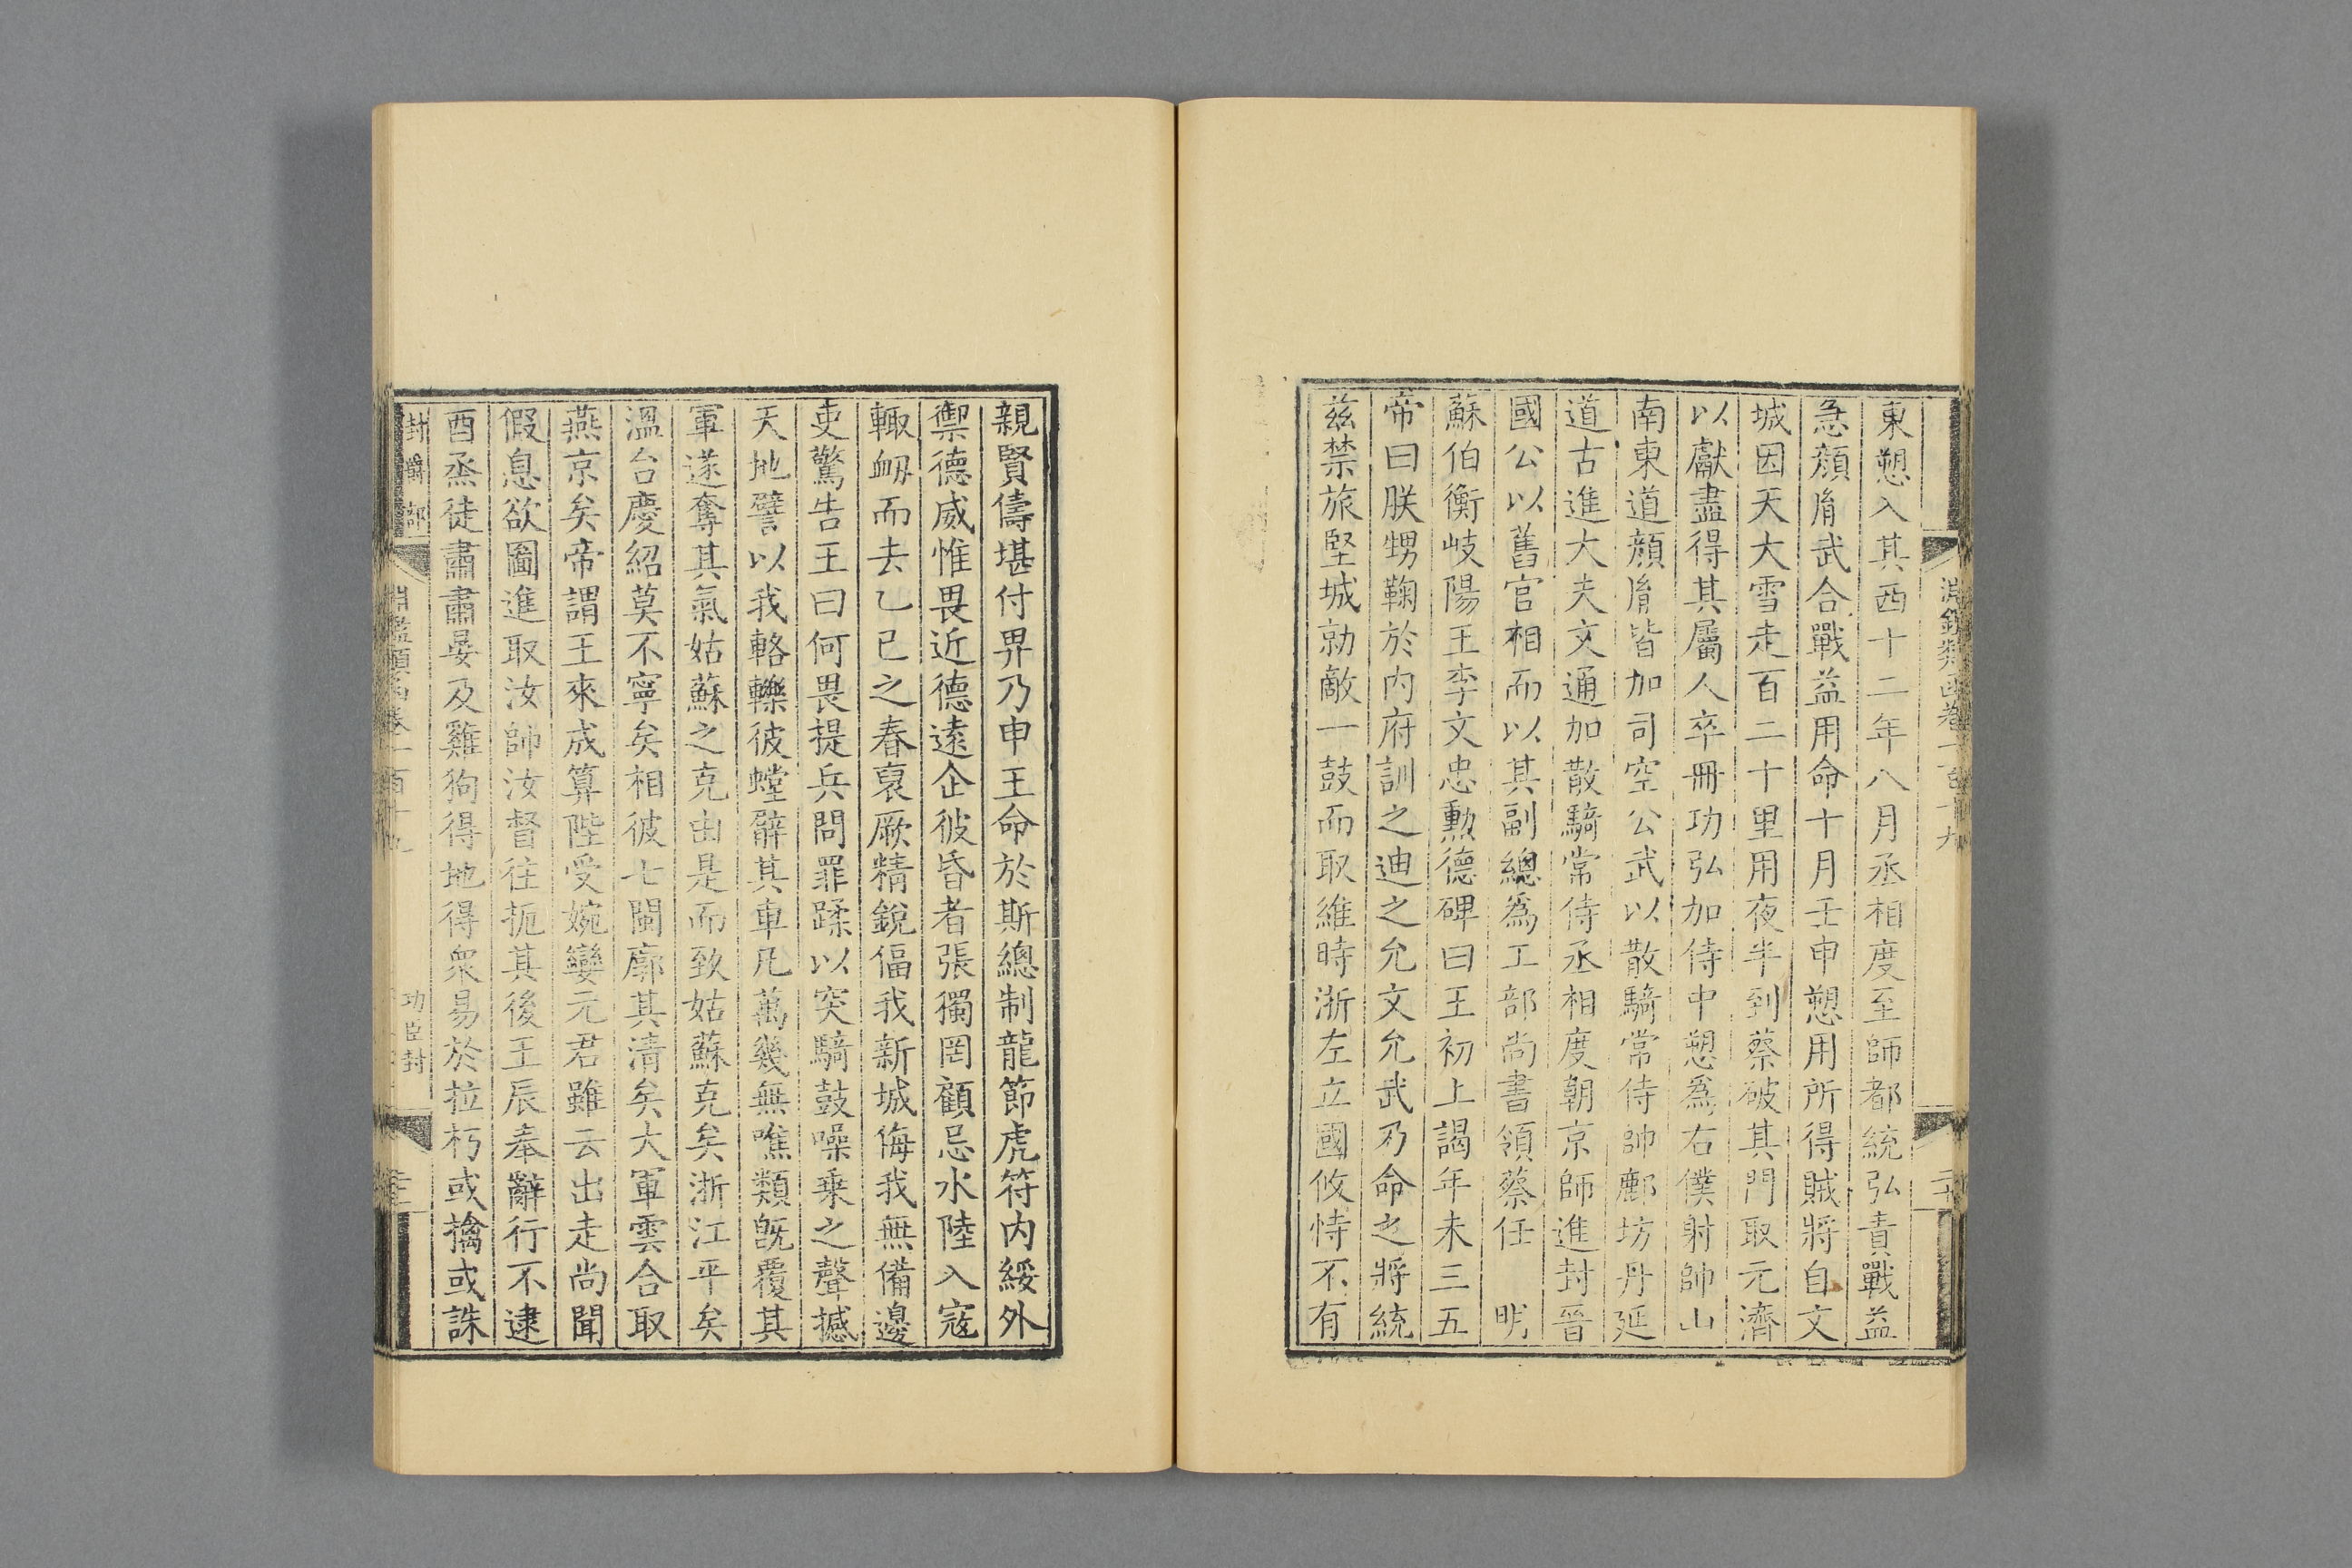 淵鑑類函卷一百十九
東愬入其西十二年八月丞相度至師都統弘責戰益
急顏胤武合戰益用命十月壬申愬用所得賊將自文
城因天大雪走百二十里用夜半到蔡破其門取元濟
以獻盡得其屬人卒冊功弘加侍中愬爲右僕射帥山
南東道顏胤皆加司空公武以散騎常侍帥鄜坊丹延
道古進大夫文通加散騎常侍丞相度朝京師進封晉
國公以舊官相而以其副總爲工部尚書領蔡任 明
蘇伯衡岐陽王李文忠勲德碑曰王初上謁年未三五
帝曰朕甥鞠於内府訓之迪之允文允武乃命之將統
兹禁旅堅城勍敵一鼓而取維時浙左立國攸恃不有
親賢儔堪付畀乃申王命於斯總制龍節虎符内綏外
禦德威惟畏近德遠企彼昏者張獨罔顧忌水陸入寇
輙衂而去乙巳之春裒厥精銳偪我新城侮我無備邊
吏驚告王曰何畏提兵問罪蹂以突騎鼓噪乗之聲撼
天地譬以我輅轢彼螳臂其車凡萬幾無噍類旣覆其
軍遂奪其氣姑蘇之克由是而致姑蘇克矣浙江平矣
溫台慶紹莫不寧矣相彼七閩廓其清矣大軍雲合取
燕京矣帝謂王來成算陛受婉孌元君雖云出走尚聞
假息欲圖進取汝帥汝督往扼其後王辰奉辭行不逮
酉烝徒肅肅晏及雞狗得地得衆易於拉朽或擒或誅
封爵部
淵鑑類函卷一百十九
功臣封